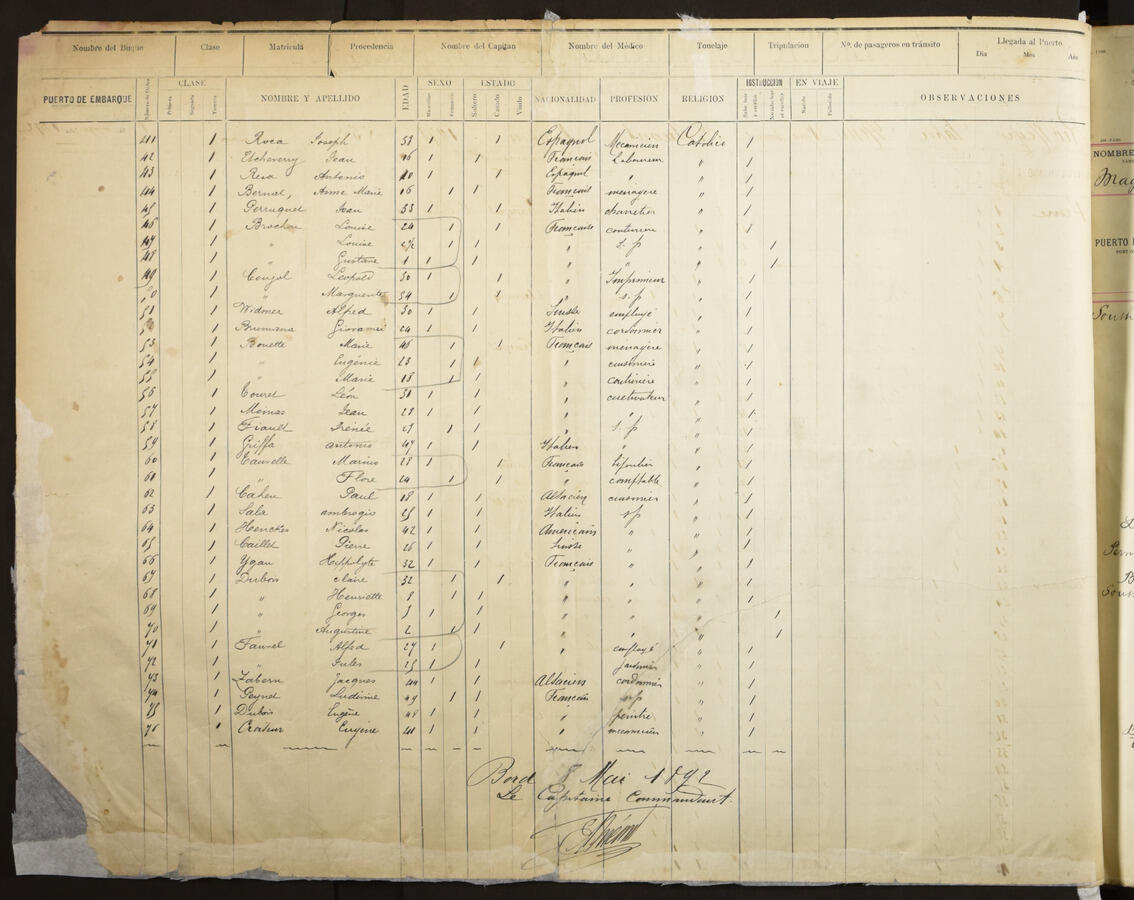 Nombre del Buque Clase Matricula Procedencia Nombre del Capitan Nombre del Médico Tonelaje Tripulacion Nº. de pasageros en tránsito Llegada al Puerto
Dia Mes Año
PUERTO DE EMBARQUE CLASE NOMBRE Y APELLIDO EDAD SEXO ESTADO NACIONALIDAD PROFESION RELIGION INSTRUCCION EN VIAJE OBSERVACIONES
Primera Segunda Tercera Masculino Femenino Soltero Casado Viudo
41 1 Roca Joseph 53 1 1 Espagnol Mecanicien Catolico 1
42 1 Etcheverry Jean 16 1 1 Français Laboureur " 1
43 1 Resa Antonio 1 1 Espagnol " " 1
44 1 Bernat, Anne Marie 16 1 1 Française ménagère " 1
45 1 Perruquet Jean 33 1 1 Italien charretier " 1
46 1 Brochon Louise 24 1 1 Française couturière " 1
47 1 " Louise 1 1 " s. p " 1
48 1 " Gustave 1 1 " " " 1
49 1 Coujol Léopold 30 1 1 " Imprimeur " 1
1 " Marguerite 34 1 1 " s. p " 1
51 1 Widmer Alfred 30 1 1 Suisse employé " 1
1 Giovanni 24 1 1 Italien cordonnier " 1
53 1 Bouette Marie 46 1 1 Français ménagère " 1
54 1 " Eugénie 23 1 1 " cuisinière " 1
55 1 " Marie 18 1 1 " couturière " 1
56 1 Couret Léon 30 1 1 " cultivateur " 1
57 1 Momas Jean 28 1 1 " " " 1
58 1 Irénée 1 1 " s. p " 1
59 1 Griffa antonio 47 1 1 Italien " " 1
60 1 Marius 28 1 1 Français " 1
61 1 " Flore 24 1 1 " comptable " 1
62 1 Cahen Paul 18 1 1 Alsacien cuisinier " 1
63 1 Sala ambrogio 25 1 1 Italien sp " 1
64 1 Henckes Nicolas 42 1 1 Americain " " 1
65 1 Caillet Pierre 26 1 1 Suisse " " 1
66 1 Ygau Hippolyte 32 1 1 Français " " 1
67 1 Dubois claire 32 1 1 " " " 1
68 1 " Henriette 8 1 1 " " " 1
69 1 " Georges 1 1 " " " 1
70 1 " Augustine 2 1 1 " " " 1
71 1 Faurel Alfred 27 1 1 " employé " 1
72 1 " Jules 25 1 1 " " 1
73 1 Zabern Jacques 44 1 1 Alsacien cordonnier " 1
74 1 Peynet Ludivine 49 1 1 Français sp " 1
75 Dubois Eugène 48 1 1 " peintre " 1
76 Eugène 41 1 1 " mecanicien " 1
Bord 8 Mai 1892
Le Capitaine Commandant.
NOMBRE
Mag
PUERTO D
South